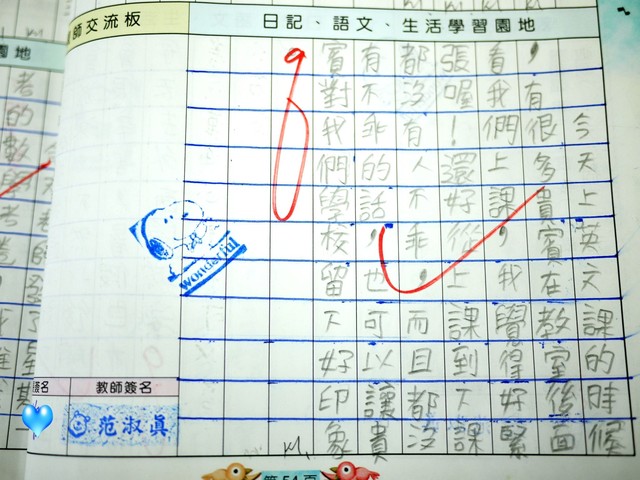 師交流板
日記、語文、生活學習園地
今天上英文課的時候
，有很多貴賓在教室後面
看我們上課，我覺得好緊
張喔！還好從上課到下課
都沒有人不乖，而且都沒
有不乖的話，也可以讓貴
賓對我們學校留下好印象
wonderful
教師簽名
范淑真
第54頁